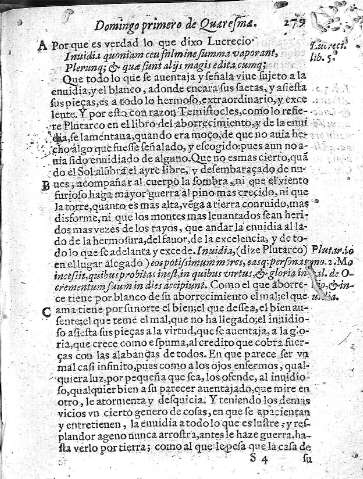 Domingo primero de Quaresma. 279
A Porque es verdad lo que dixo Lucrecio
Lucreti.
Inuidia quoniam ceu fulmine summa vaporant,
lib. 5.
Plerunq; & quæ sunt alijs magis edita cumq;
Que todo lo que se auentaja y señala viue sujeto a la
enuidia, y el blanco, adonde encara sus saetas, y asiesta
sus pieças, es a todo lo hermoso, extraordinario, y exce
lente. Y por esto con razon Temistocles, como lo refie
re Plutarco en el libro del aborrecimiento, y de la enui
dia, se lamentaua, quando era moço, de que no auia he-
cho algo que fuesse señalado, y escogido: pues aun no a-
uia sido enuidiado de alguno. Que no es mas cierto, quã
do el Sol alúbra el ayre libre, y desembaraçado de nu-
B ues, acompañar al cuerpo la sombra, ni que el viento
furioso haga mayor guerra al pino mas crecido, ni que
la torre, quanto es mas alta, vẽga a tierra con ruido, mas
disforme, ni que los montes mas leuantados sean heri-
dos mas vezes de los rayos, que andar la enuidia al la-
do de la hermosura, del fauor, de la excelencia, y de to-
do lo que se adelanta y excede. Inuidia, (dize Plutarco)
Plutarco
en el lugar alegado) eos potissimum res, easq; personas
in cessit, quibus probitas inest, in quibus virtus, & gloria in
crementum suum in dies accipiunt. Como el que aborre-
ce tiene por blanco de su aborrecimiento el mal, el que
C ama tiene por su norte el bien; el que dessea, el bien au-
sente; el que teme el mal, que no ha llegado; el inuidio-
so asiesta sus pieças a la virtud, que se auentaja, a la glo-
ria, que crece como espuma, al credito que cobra fuer-
ças con las alabanças de todos. En que parece ser vn
mal casi infinito, pues como a los ojos enfermos, qual-
quiera luz, por pequeña que sea, los ofende, al inuidio
so, qualquier bien a su parecer auentajado, que mire en
otro, le atormenta y desquicia. Y teniendo los demas
vicios vn cierto genero de cosas, en que se apacientan
y entretienen, la enuidia a todo lo que es lustre, y res-
plandor ageno nunca arrostra, antes le haze guerra, ha-
sta verlo por tierra; como al que le pesa que la casa de
S 4 su